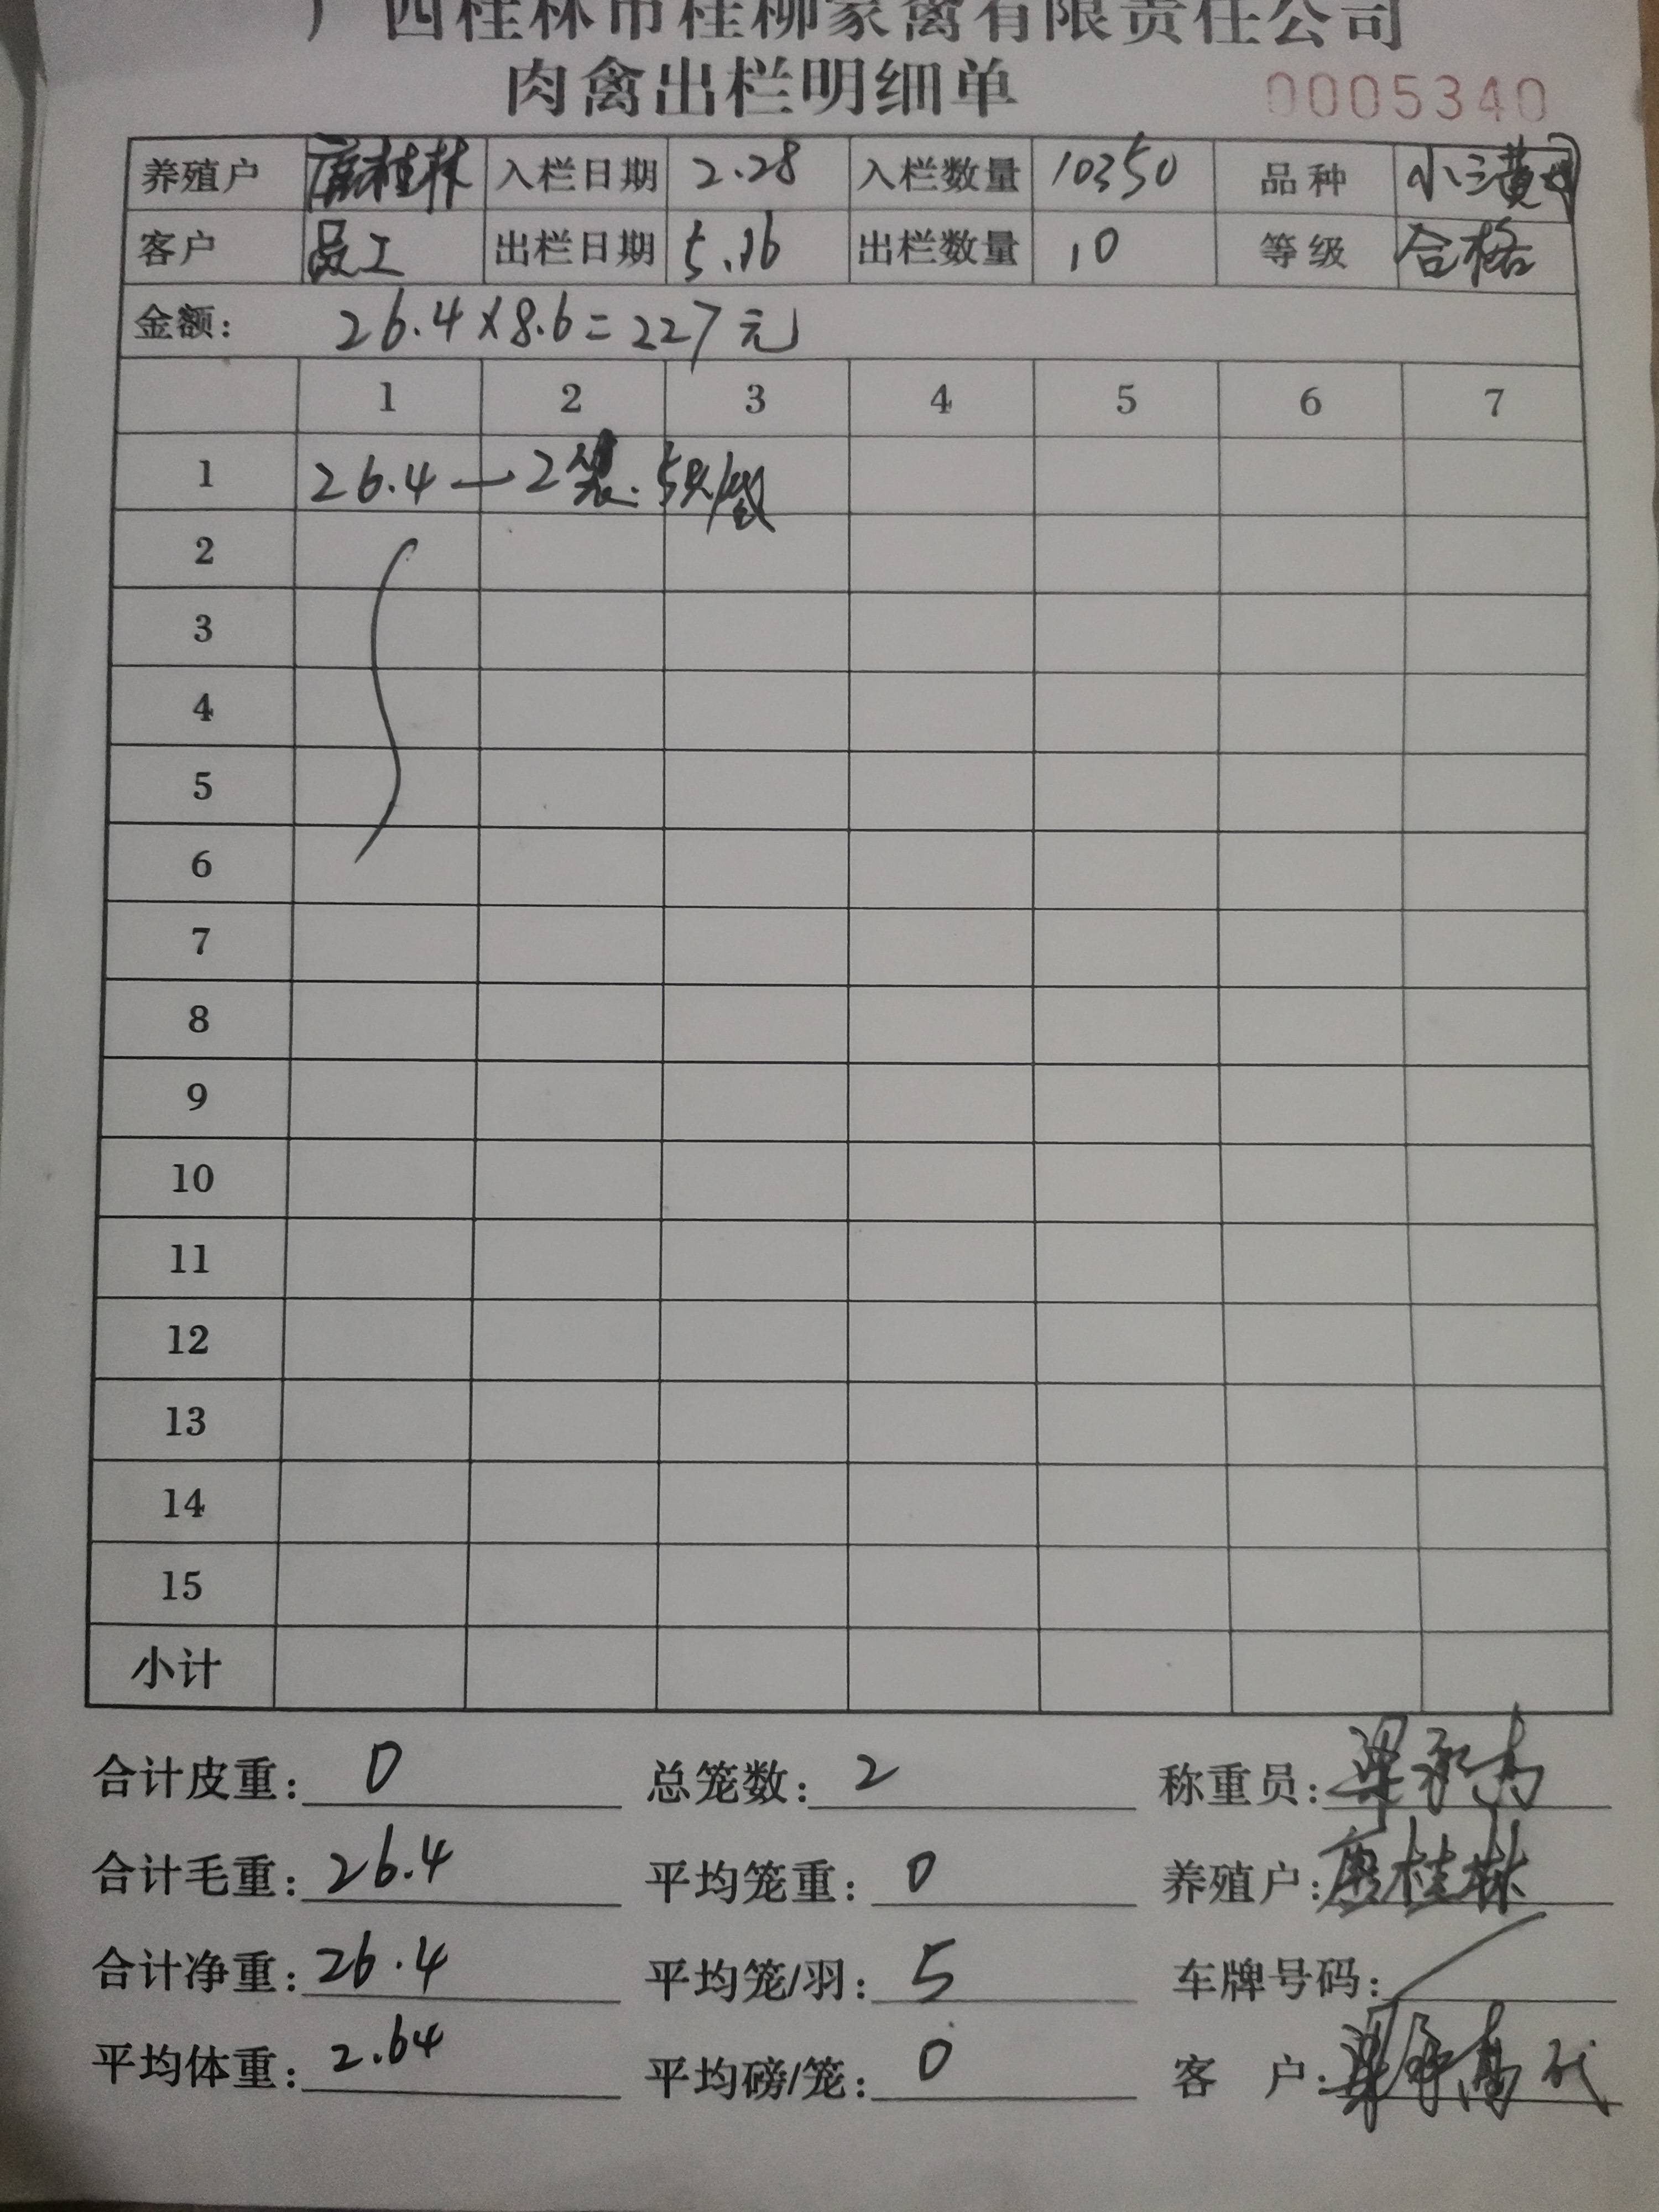 广西桂林市桂柳家禽有限责任公司
肉禽出栏明细单
0005340
养殖户 唐桂林 入栏日期 2.28 入栏数量 10350 品种 小三黄
客户 员工 出栏日期 5.16 出栏数量 10 等级 合格
金额: 26.4×8.6=227元
1 2 3 4 5 6 7
1 26.4—2袋.5只/袋
2
3
4
5
6
7
8
9
10
11
12
13
14
15
小计
合计皮重: 0 总笼数: 2 称重员: 梁
合计毛重: 26.4 平均笼重: 0 养殖户: 唐桂林
合计净重: 26.4 平均笼/羽: 5 车牌号码:
平均体重: 2.64 平均磅/笼: 0 客户: 梁 代